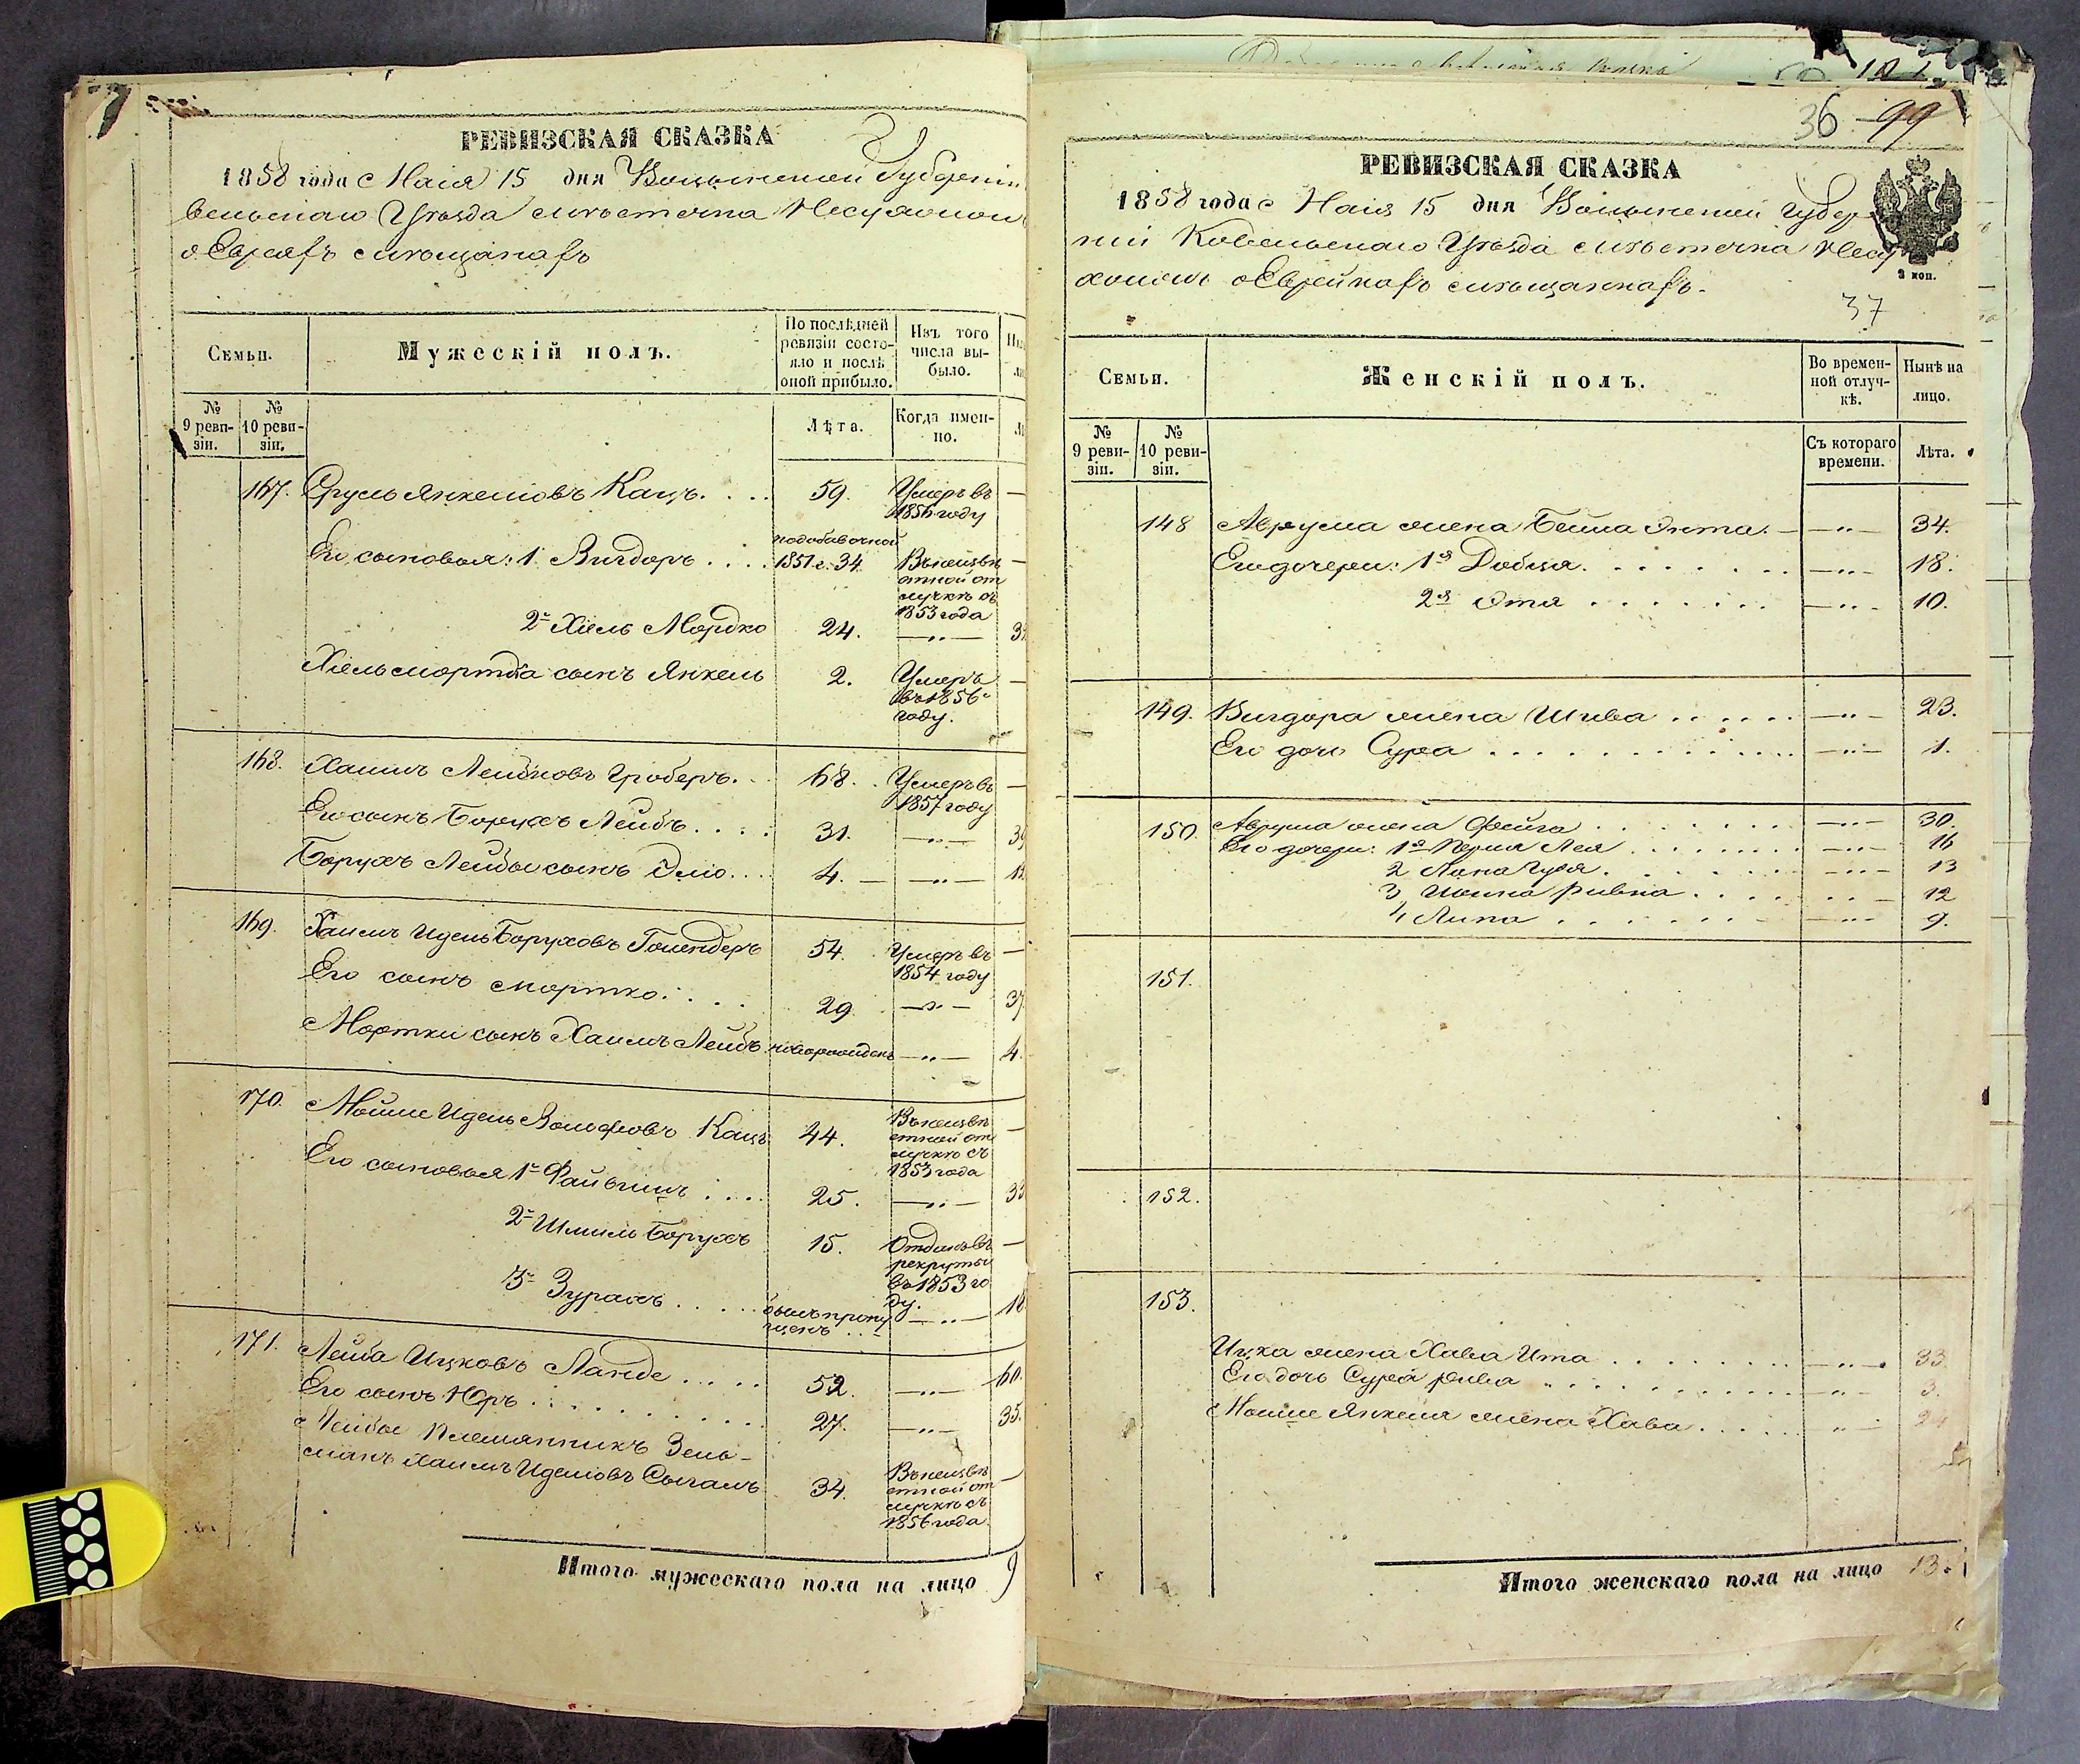 РЕВИЗСКАЯ СКАЗКА
1858 года Маія 15 дня Волынской Губерніи
вельскаго Уѣзда мѣстечка
о Евреяхъ мѣщанахъ
Семьи.
Мужескій полъ.
По послѣдней ревизіи состояло и послѣ оной прибыло.
Изъ того числа выбыло.
№ 9 ревизіи.
№ 10 ревизіи.
Лѣта.
Когда именно.
167. Сруль Янкелювъ Кацъ. 59. Умеръ въ
1856 году
Его сыновья: 1. Вигдоръ 1851 г. 34. Въ неизвѣ
стной от
лучкѣ съ
1853 года
2й Хіель Мордко 24. —"—
Хіельмортка сынъ Янкель 2. Умеръ
въ 1856
году.
168. Хаимъ Лейбковъ Гроберъ. 68. Умеръ въ
1857 году
Его сынъ Борухъ Лейбъ 31. —"—
Борухъ Лейбы сынъ 4. —"—
169. Хаимъ Идель Боруховъ 54. Умеръ въ
1854 году
Его сынъ Мортко 29. —"— 37
Мортки сынъ Хаимъ Лейбъ новорожденъ —"— 4.
170. Мошше Идель Вольфовъ Кацъ 44. Въ неизвѣ
стной от
лучкѣ съ
1853 года
Его сыновья 1й Файвишъ 25. —"—
2й Шмиль Борухъ 15. Отданъ въ
рекруты
въ 1853 го
ду.
3й былъ пропу
щенъ —"—
171. Лейба Ицковъ Ланде 52. —"— 60.
Его сынъ Юръ 27. —"— 35.
Лейбы племянникъ Зель-
манъ Хаимъ Иделювъ 34. Въ неизвѣ
стной от
лучкѣ съ
1856 года.
Итого мужескаго пола на лицо 9
36 99
РЕВИЗСКАЯ СКАЗКА
1858 года Маія 15 дня Волынской Губер
ніи Ковельскаго Уѣзда мѣстечка Несу
хоижъ о Еврейкахъ мѣщанкахъ.
3 коп.
37
Семьи.
Женскій полъ.
Во временной отлучкѣ.
Нынѣ на лицо.
№ 9 ревизіи.
№ 10 ревизіи.
Съ котораго времени.
Лѣта.
148 Аврума жена Бейла Энта. —"— 34.
Его дочери: 1я Добися —"— 18.
2я Эта —"— 10.
149. Вигдора жена Шива —"— 23.
Его дочь Сура —"— 1.
150. Аврума жена Фейга —"— 30.
Его дочери: 1я Перля Лея —"— 16
2 —"— 13
3 Ривка —"— 12
4 Липа —"— 9.
151.
152.
153.
Ицка жена Хава Ита —"— 33.
Его дочь Сура Рива —"— 3.
Мошше Янкеля жена Хава —"— 24
Итого женскаго пола на лицо 13.